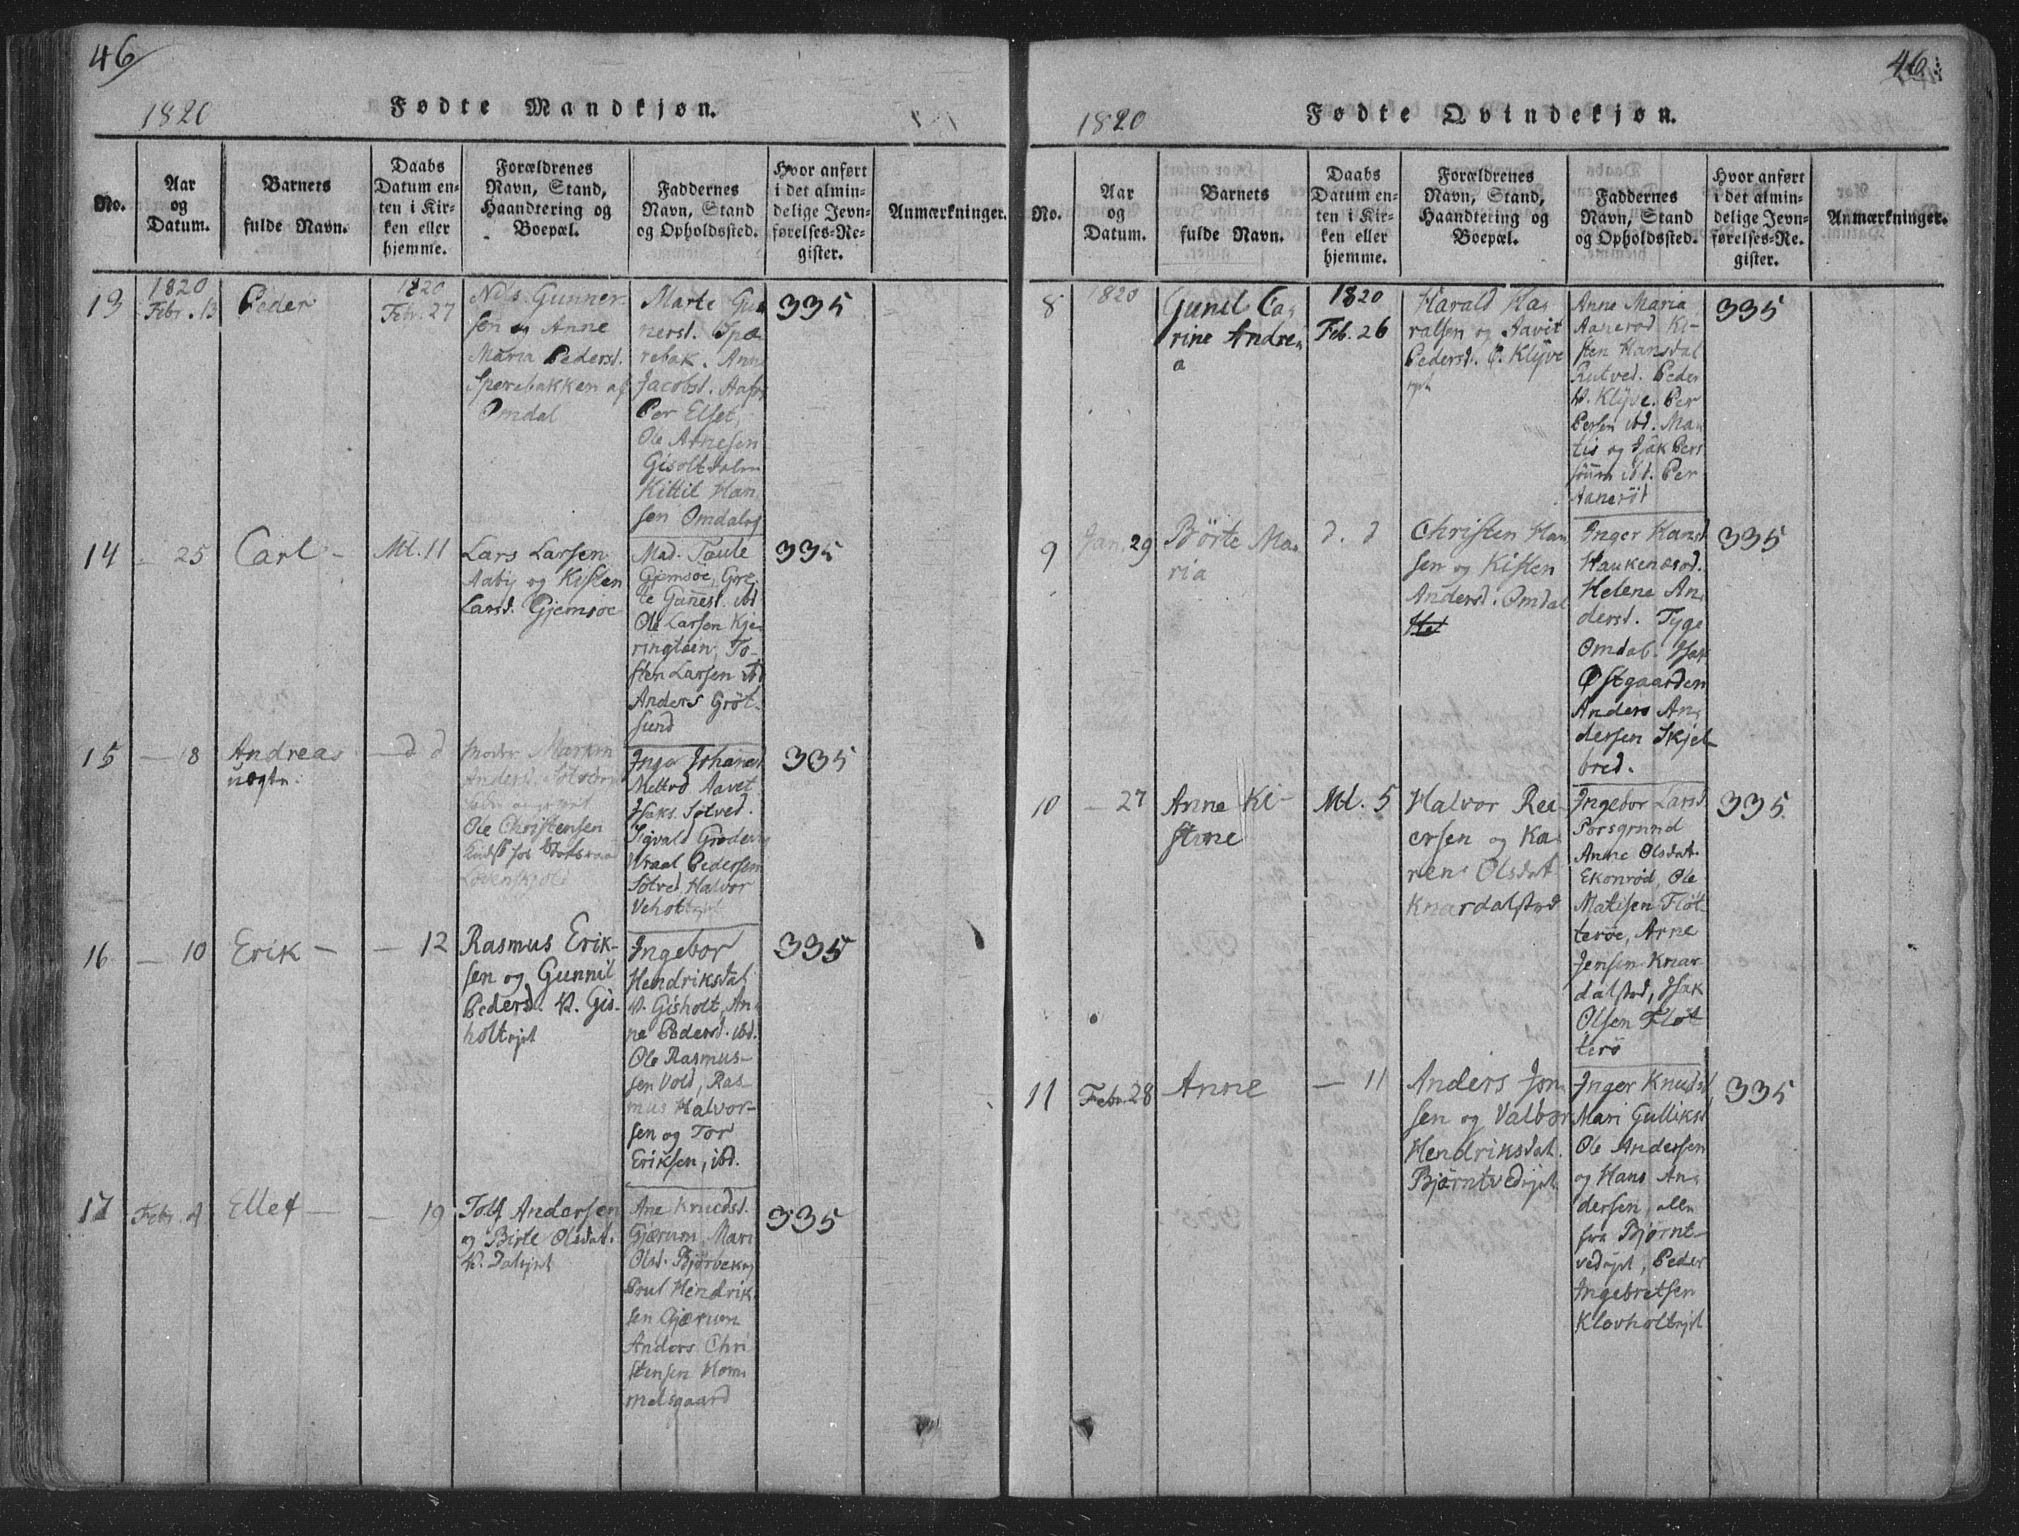 46
1820
Fødte Mandkjøn.
No.
Aar
og
Datum.
Barnets
fulde Navn.
Daabs
Datum en-
ten i Kir-
ken eller
hjemme.
Forældrenes
Navn, Stand,
Haandtering og
Boepæl.
Faddernes
Navn, Stand
og Opholdssted.
Hvor anført
i det almin-
delige Jevn-
førelses-Re-
gister.
Anmærkninger.
13
1820
Febr. 13
Peder
1820
Febr. 27
Nils Gunner
sen og Anne
Maria Pedersd.
Sperebakken af
Omdal
Marte Gun
nersd. Spæ
rebak. Ann
Jacobsd.
Per Elset,
Ole Arnesen
Gisoltdalen
Kittil Han
sen Omdal
335
14
25
Carl -
Mt. 11
Lars Larsen
Aaby og Kisten
Larsd. Gjemsøe
Mad. Taule
Gjemsøe, Gre
te Gunnesd. ibd
Ole Larsen Kje
ringtein, To-
sten Larsen ibd
Anders Grøt-
sund
335
15
— 8
Andreas
uægte.
— d d
Moder Maren
Andersd.
Ole Christensen
Løvenskjold
Inger Johanesd
Isaks. Sølved.
Sigvald
Wraal Pedersen
Sølved, Halvor
335
16
— 10
Erik —
— 12
Rasmus Erik-
sen og Gunnil
Pedersd. V. Gis-
holtejet
Ingebor
Hendriksdat
V. Gisholt, An
ne Pedersd. ibd.
Ole Rasmus-
sen Vold, Ras-
mus Halvor-
sen og Tor
Eriksen, ibd.
335
17
Febr.
Ellef —
— 19
Tolf Andersen
og Birte Olsdat.
Ane Knudsd.
Gjærum, Mari
Olsd. Bjørvekej
Poul Hendrik
sen Gjærum
Anders Chri
stensen Hom
melsgaard
335
46
1820
Fødte Qvindekjøn.
No.
Aar
og
Datum.
Barnets
fulde Navn.
Daabs
Datum en-
ten i Kir-
ken eller
hjemme.
Forældrenes
Navn, Stand,
Haandtering og
Boepæl.
Faddernes
Navn, Stand
og Opholdssted.
Hvor anført
i det almin-
delige Jevn-
førelses-Re-
gister.
Anmærkninger.
8
1820
Gunil Ca-
rine Andre-
a
1820
Feb. 26
Harald Ha-
ralsen og Aavit
Pedersd. Ø. Klyve
ejet
Anne Maria
Aanerød Ki-
sten Hansdat
Rutved. Peder
V. Klyve. Per
Persen ibd. Ma
tis og Isak Pers
sønner ibd. Per
Aanerød
335
9
Jan. 29
Börte Ma-
ria
d. d
Christen Han
sen og Kisten
Andersd. Omdal
Inger Hansd
Haukenæsød.
Helene An-
dersd. Tyge
Omdal. Isak
Østgaarden
Anders An-
dersen Skjel-
bred.
335
10
— 27
Anne Ki-
stine
Mt. 5
Halvor Rei-
ersen og Ka-
ren Olsdat
Knardalstrød
Ingebor Larsd
Porsgrund
Anne Olsdat.
Ekonrød, Ole
Matisen Fløt
terøe, Arne
Jensen Knar
dalstrød, Isak
Olsen Fløt
terø
335
11
Febr. 28
Anne
— 11
Anders Jon
sen og Valbor
Hendriksdat.
Bjørntvedejet
Inger Knudsd
Mari Gulliksd
Ole Andersen
og Hans An-
dersen, alle
fra Bjørnt-
vedejet, Peder
Ingebretsen
Klovholtejet
335